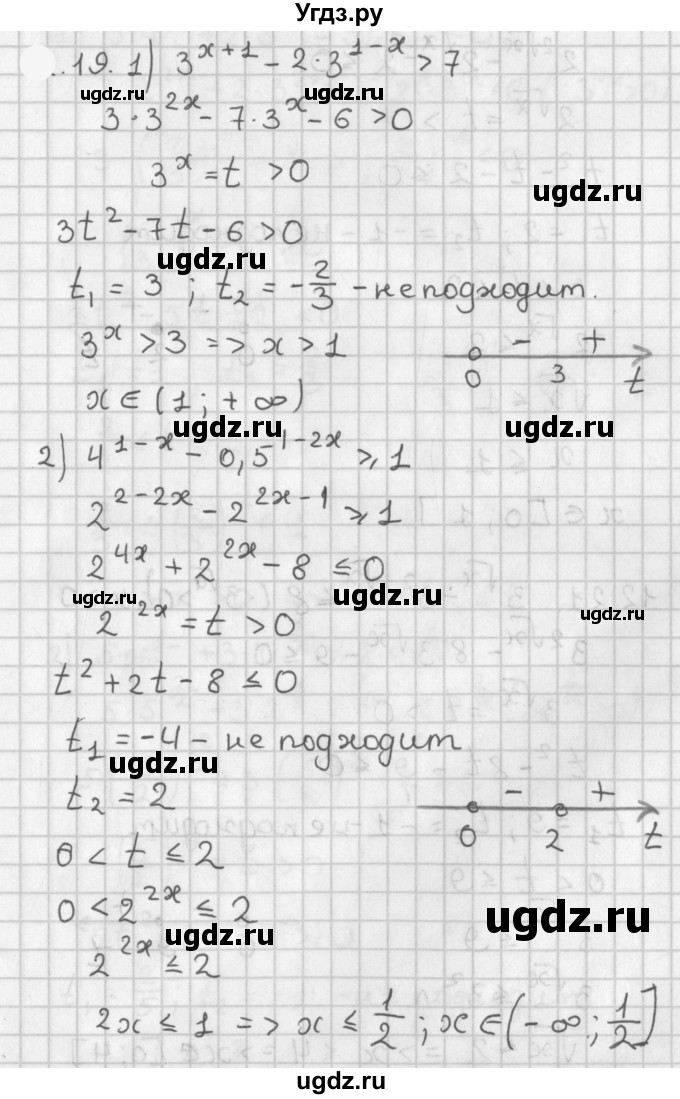 Угдз.ру
..19. 1) 3^{x+1} - 2·3^{1-x} > 7
ugdz.ru ugdz.ru
3·3^{2x} - 7·3^x - 6 > 0
3^x = t > 0
ugdz.ru
3t² - 7t - 6 > 0
ugdz.ru
t₁ = 3 ; t₂ = -2/3 - не подходит.
3^x > 3 => x > 1
- +
0 3 t
x ∈ (1 ; +∞)
ugdz.ru ugdz.ru
2) 4^{1-x} - 0,5^{1-2x} ⩾ 1
2^{2-2x} - 2^{2x-1} ⩾ 1
2^{4x} + 2^{2x} - 8 ≤ 0
ugdz.ru ugdz.ru ugdz.ru
2^{2x} = t > 0
t² + 2t - 8 ≤ 0
t₁ = -4 - не подходит
ugdz.ru
t₂ = 2
- +
0 2 t
0 < t ≤ 2
0 < 2^{2x} ≤ 2
ugdz.ru ugdz.ru
2^{2x} ≤ 2
2x ≤ 1 => x ≤ 1/2 ; x ∈ (-∞; 1/2]
ugdz.ru